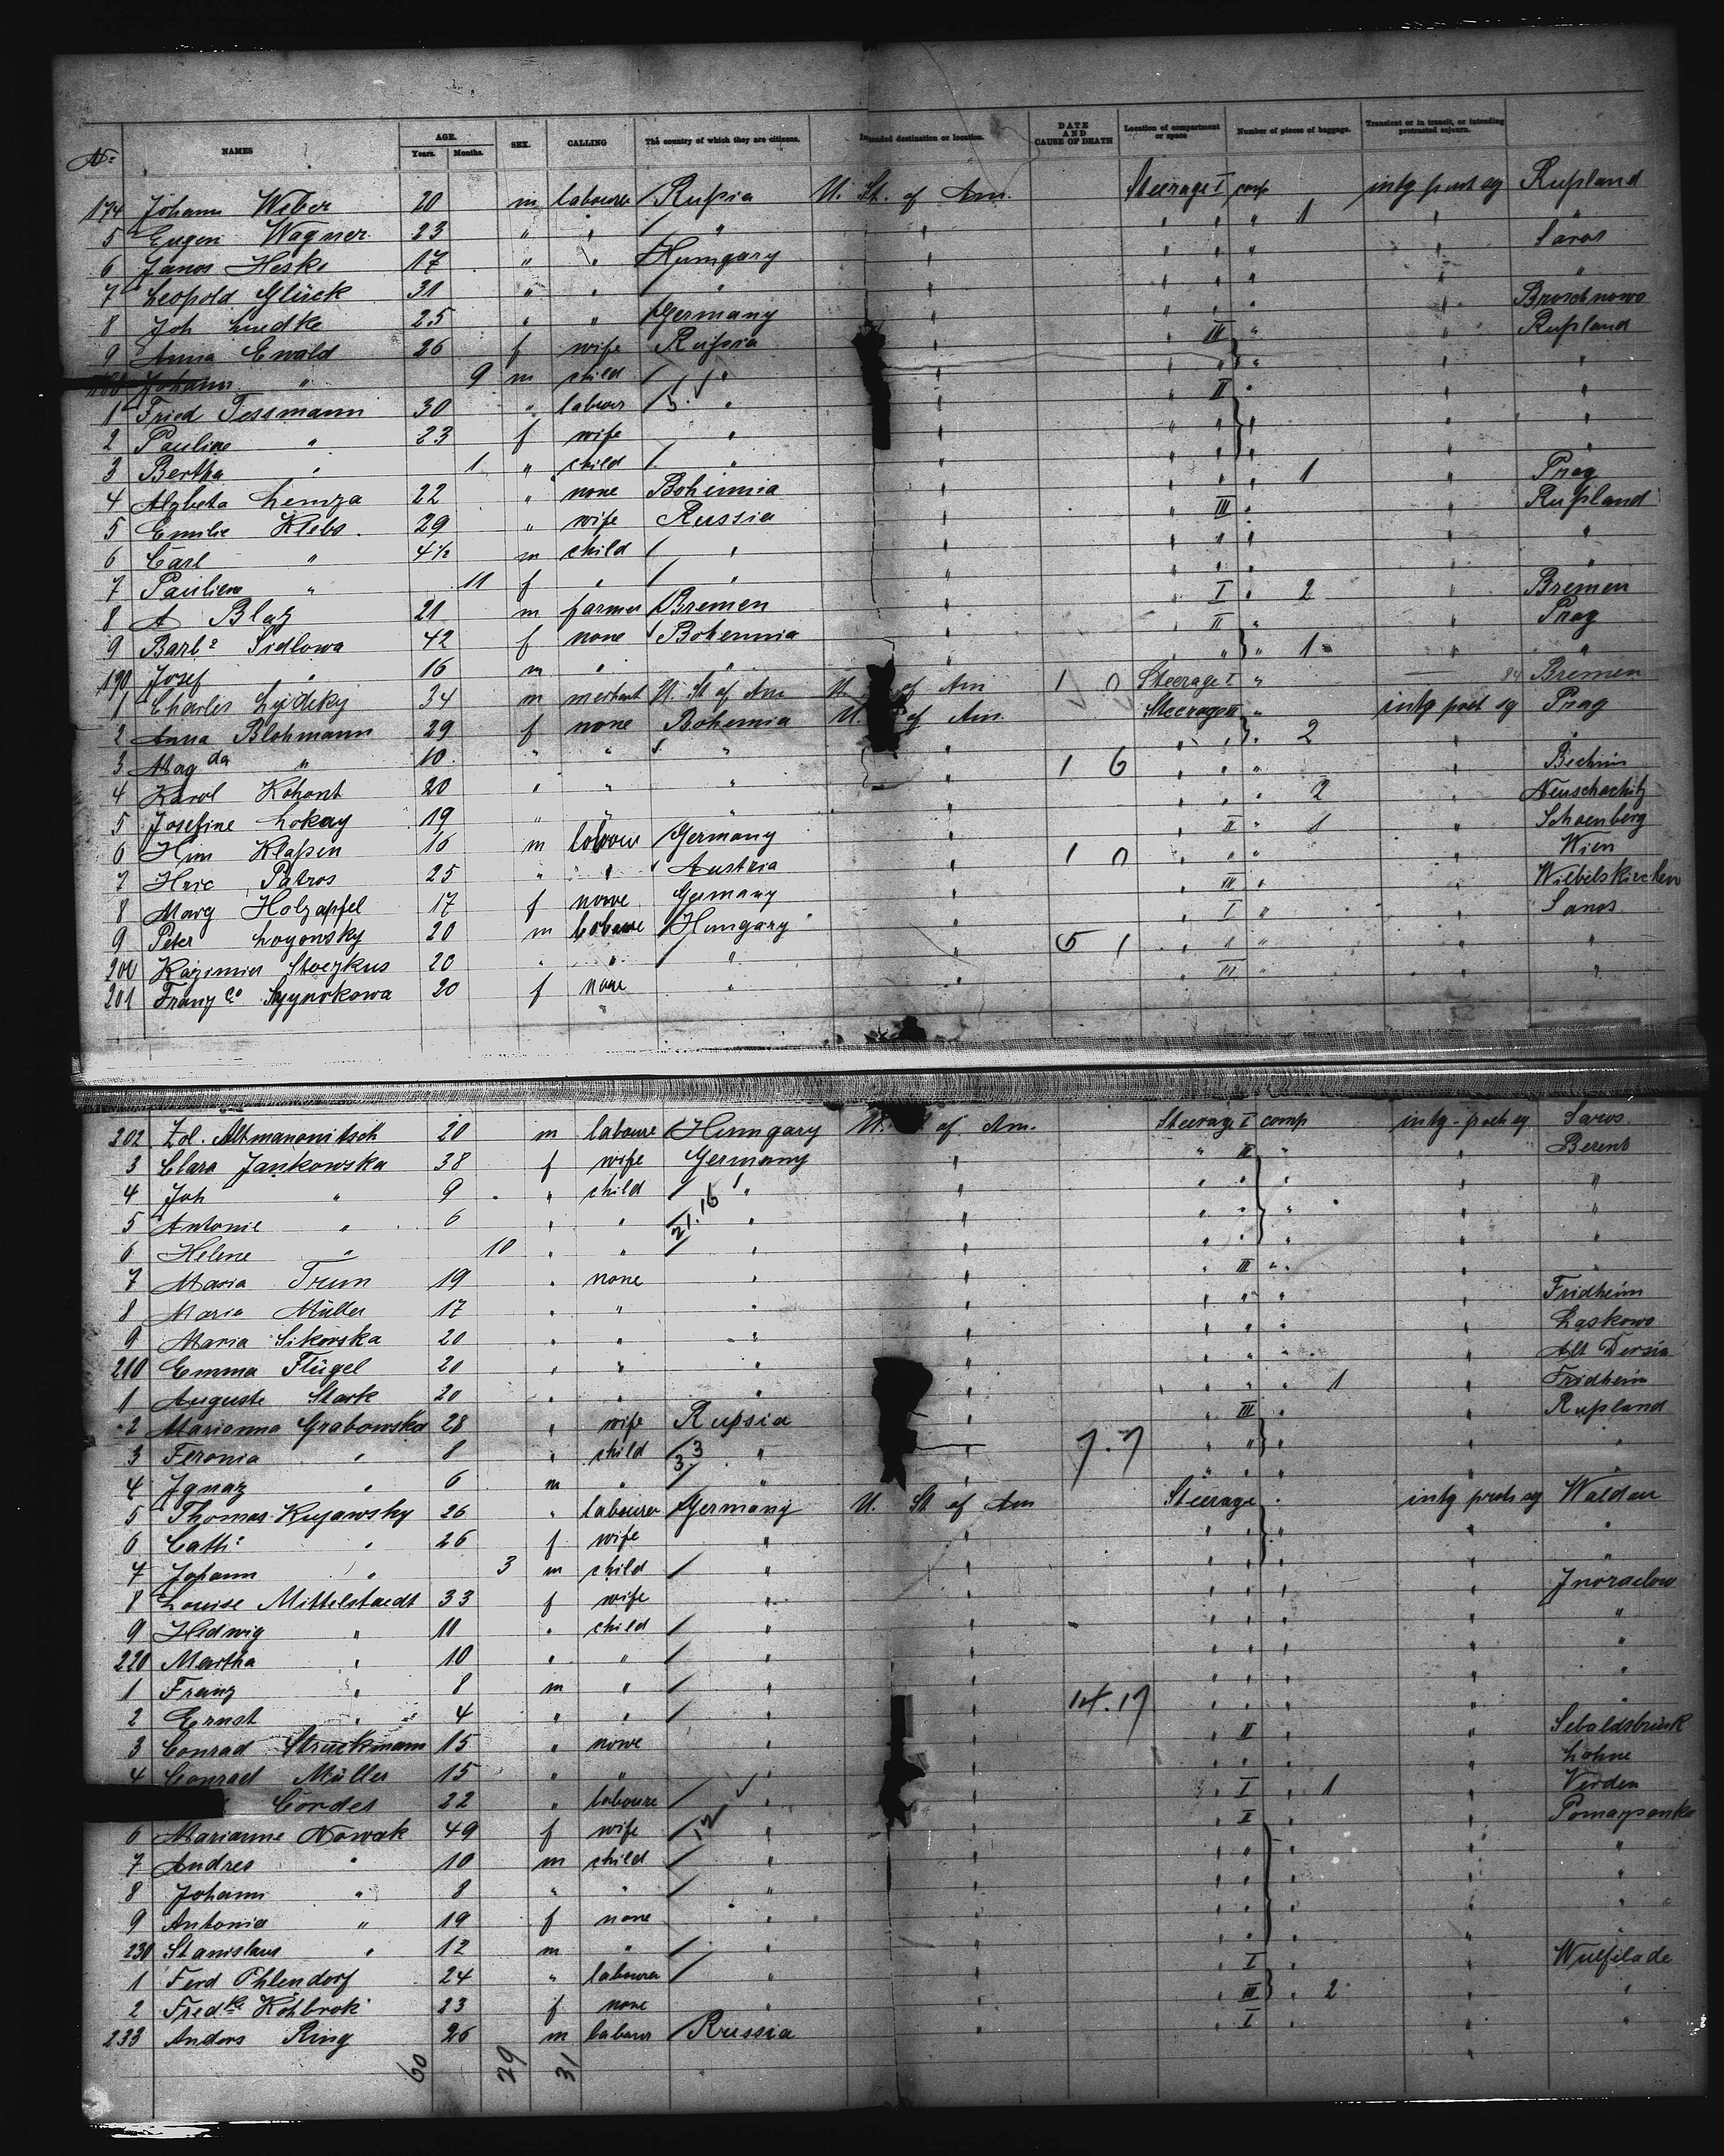 No NAMES AGE. Years. Months. SEX. CALLING The country of which they are citizens. Intended destination or location. DATE AND CAUSE OF DEATH Location of compartment or space Number of pieces of baggage. Transient or in transit, or intending protracted sojourn.
174 Johann Weber 20 m labourer Rußia U. St. of Am. Steerage I comp intg prot sg Rußland
5 Eugen Wagner 23 " " " " " " " 1 " "
6 Janos Hesko 17 " " Hungary " " " " " Saros
7 Leopold Glück 31 " " " " " " " " "
8 Joh Luedke 25 " " Germany " " " " " Broschnowo
9 Anna Ewald 26 f wife Rußia " " III " " Rußland
180 Johann " 9 m child " " " " " " "
1 Fried Tessmann 30 " labour " " " II " " "
2 Pauline " 23 f wife " " " " " " "
3 Bertha " 1 " child " " " " " " "
4 Alzbeta Lemza 22 " none Bohemia " " " " 1 " Prag
5 Emilie Klebs 29 " wife Russia " " III " " Rußland
6 Carl " 4½ m child " " " " " " "
7 Paulien " 11 f " " " " " " " "
8 A Blatz 21 m farmer Bremen " " I " 2 " Bremen
9 Barba Sidlowa 42 f none Bohemia " " II " " Prag
190 Josef " 16 m " " " " " " 1 " "
1 Charles Lydeky 34 m merchant U. St of Am U. of Am 1 0 Steerage I " 84 Bremen
2 Anna Blohmann 29 f none Bohemia U. of Am. Steerage II " intg prot sg Prag
3 Magda " 10 " " " " " " " 2 " "
4 Karol Kohont 20 " " " " 1 6 " " " " Bechin
5 Josefine Lokay 19 " " " " " " " 2 " Neuschachitz
6 Him Klaßen 16 m labourer Germany " " II " 1 " Schoenberg
7 Hric Patros 25 " " Austria " 1 0 " " " " Wien
8 Marg Holzapfel 17 f none Germany " " III " " Wiebelskirchen
9 Peter Loyonsky 20 m laboure Hungary " " I " " Saros
200 Kazimier Stoczkus 20 " " " " 5 1 " " " " "
201 Franzca Szynokowa 20 f none " " " III " " "
202 Zol. Altmanowitsch 20 m laboure Hungary U. of Am. Steerage I comp intg prot sg Saros
3 Clara Jankowska 38 f wife Germany " " III " " Berent
4 Joh " 9 " child " " " " " " "
5 Antonie " 6 " " 21.16 " " " " " " "
6 Helene " 10 " " " " " " " " "
7 Maria Trun 19 " none " " " III " " "
8 Maria Müller 17 " " " " " " " " Fridheim
9 Maria Sikorska 20 " " " " " " " " Laskowo
210 Emma Flügel 20 " " " " " " " " Alt Dersin
1 Auguste Stark 20 " " " " " " " 1 " Fridheim
2 Marianna Grabowska 28 " wife Rußia " " III " " Rußland
3 Feronia " 8 " child 3 3 " " 7.7 " " " " "
4 Ignaz " 6 m " " " " " " " "
5 Thomas Kujawsky 26 " labourer Germany U. St of Am Steerage " intg prot sg Waldau
6 Cath: " 26 f wife " " " " " " "
7 Johann " 3 m child " " " " " " "
8 Louise Mittelstaedt 33 f wife " " " " " " Inoraclow
9 Hedwig " 11 " child " " " " " " "
220 Martha " 10 " " " " " " " " "
1 Franz " 8 m " " " " " " " "
2 Ernst " 4 " " " " 14.17 " " " " "
3 Conrad Struckmann 15 " none " " " II " " Sebaldsbrück
4 Conrad Müller 15 " " " " " " " " Lohne
Cordes 22 " laboure " " " I " 1 " Verden
6 Marianne Nowak 49 f wife " " " II " "
7 Andres " 10 m child " " " " " " "
8 Johann " 8 " " " " " " " " "
9 Antonia " 19 f none " " " " " " "
230 Stanislaus " 12 m " " " " " " " "
1 Ferd Ohlendorf 24 " labourer " " " I " Wulfelade
2 Fredke Kohbrok 23 f none " " " III " 2 " "
233 Anders Ring 26 m labour Russia " " I " "
60 29 31